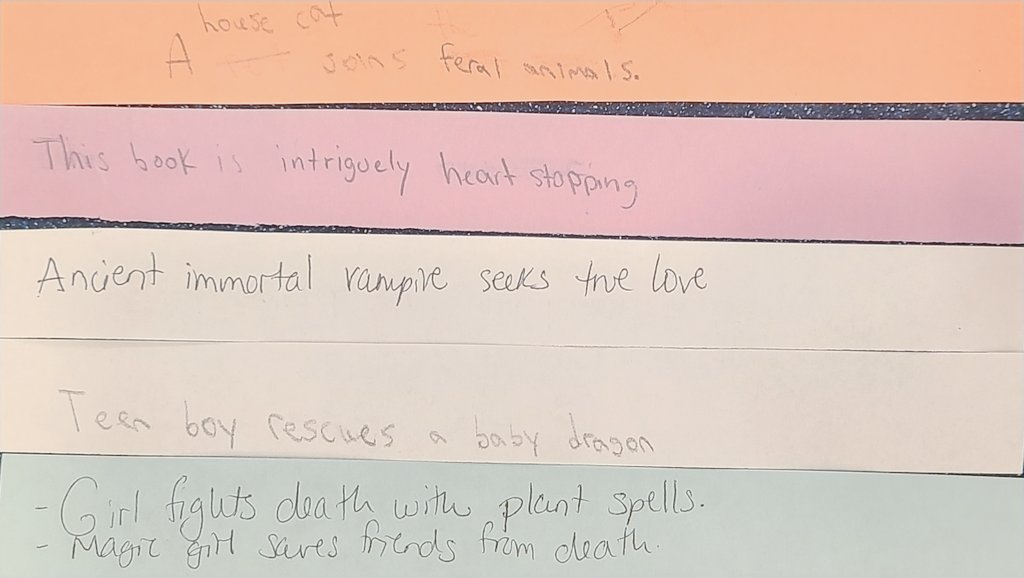 house cat
A joins feral animals.
This book is intriguely heart stopping
Ancient immortal vampire seeks true love
Teen boy rescues a baby dragon
- Girl fights death with plant spells.
- Magic girl saves friends from death.